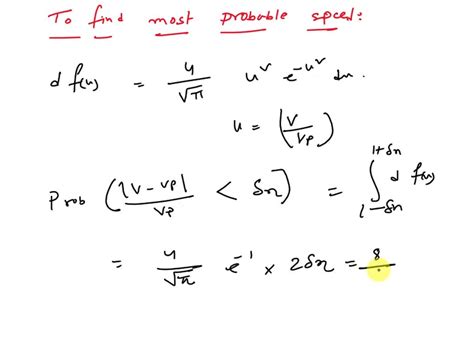 To find most probable speed:
d f(u) = 4/√π u² e^-u² du.
u = (V/Vp)
Prob (|V - Vp|/Vp < δη) = ∫_{1-δη}^{1+δη} d f(u)
= 4/√π e^-1 × 2δη = 8/